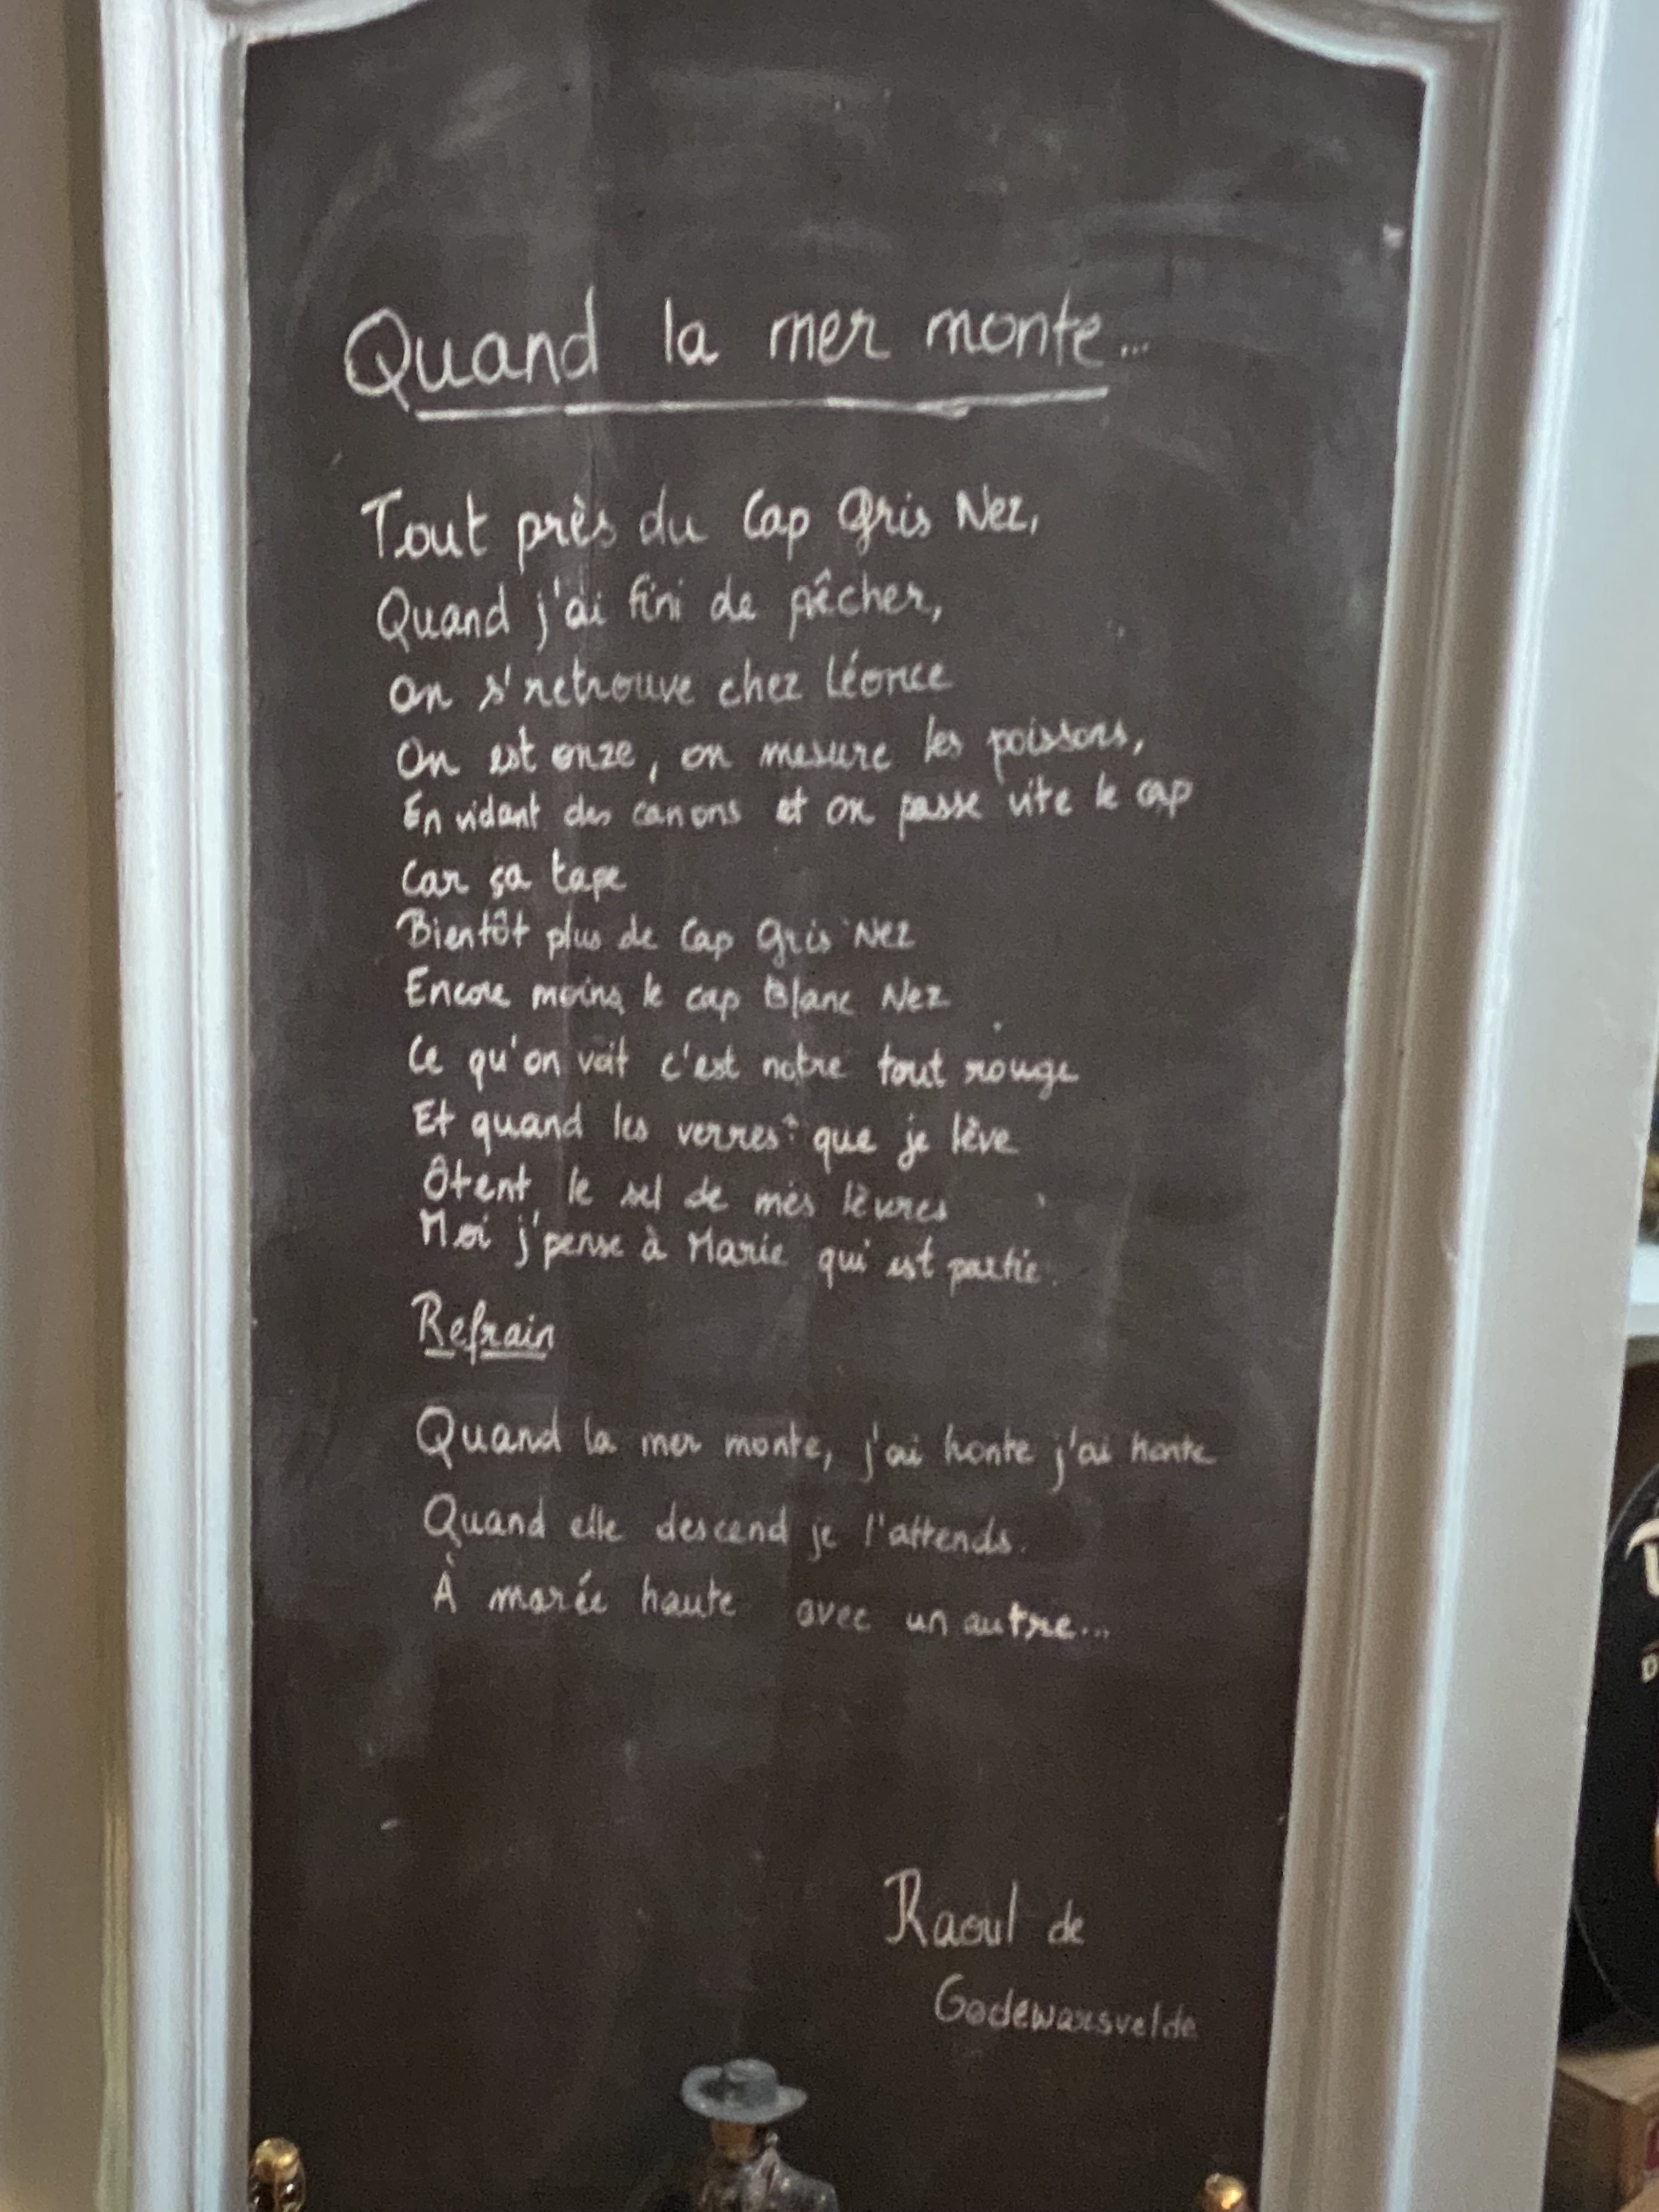 Quand la mer monte...
Tout près du Cap Gris Nez,
Quand j'ai fini de pêcher,
on s'retrouve chez Léonce
On est onze, on mesure les poissons,
En vidant des canons et on passe vite le cap
Car ça tape
Bientôt plus de Cap Gris Nez
Encore moins le cap Blanc Nez
Ce qu'on voit c'est notre tout rouge
Et quand les verres que je lève
Ôtent le sel de mes lèvres
Moi j'pense à Marie qui est partie.
Refrain
Quand la mer monte, j'ai honte j'ai honte
Quand elle descend je l'attends.
À marée haute avec un autre...
Raoul de
Godewarsvelde